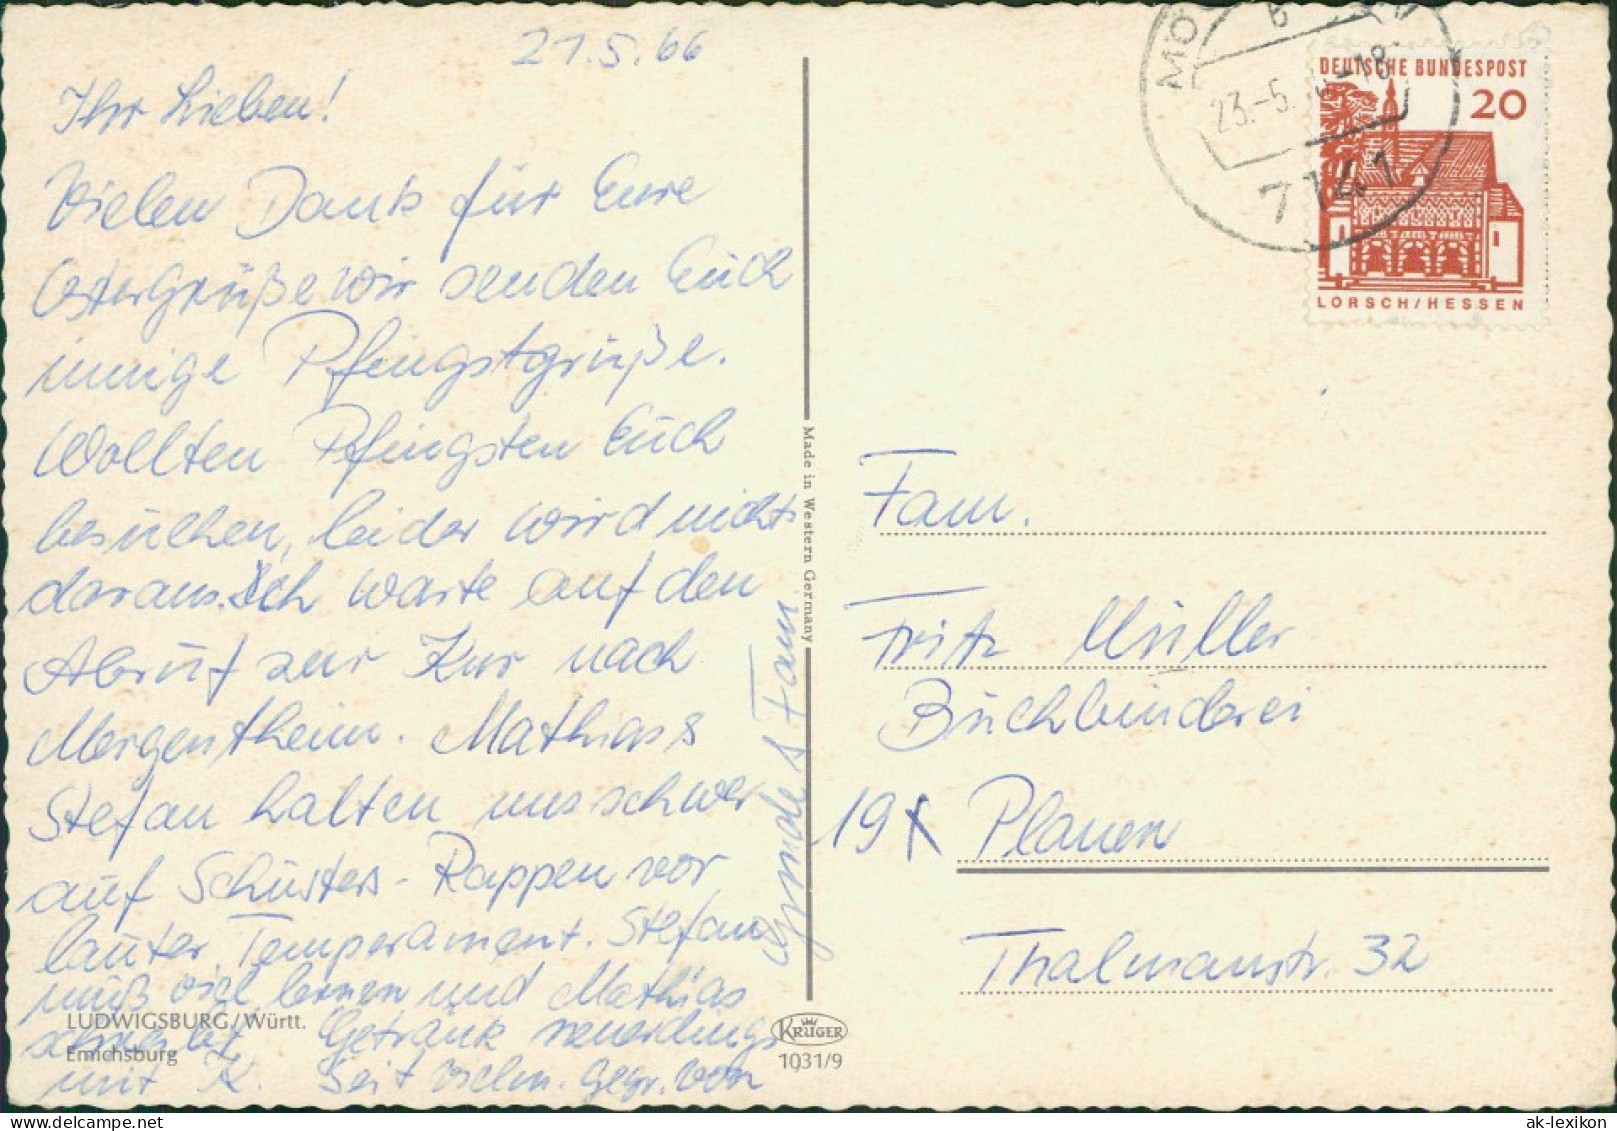 21.5.66
Ihr Lieben!
Vielen Dank für Eure
Ostergrüße wir senden Euch
innige Pfingstgrüße.
Wollten Pfingsten Euch
besuchen, leider wird nichts
daraus. Ich warte auf den
Abruf zur Kur nach
Mergentheim. Mathias &
Stefan halten uns schwer
auf Schusters-Rappen vor
lauter Temperament. Stefan
muß viel lernen und Mathias
schreibt Getränk neuerdings
mit K. Seit vielm. gegr. von
Fam.
LUDWIGSBURG/Württ.
Emichsburg
Made in Western Germany
KRÜGER
1031/9
MÖ
b
23.-5. -18
7141
DEUTSCHE BUNDESPOST
20
LORSCH/HESSEN
Fam.
Fritz Müller
Buchbinderei
19 Plauen
Thalmanstr. 32
ak-lexikon